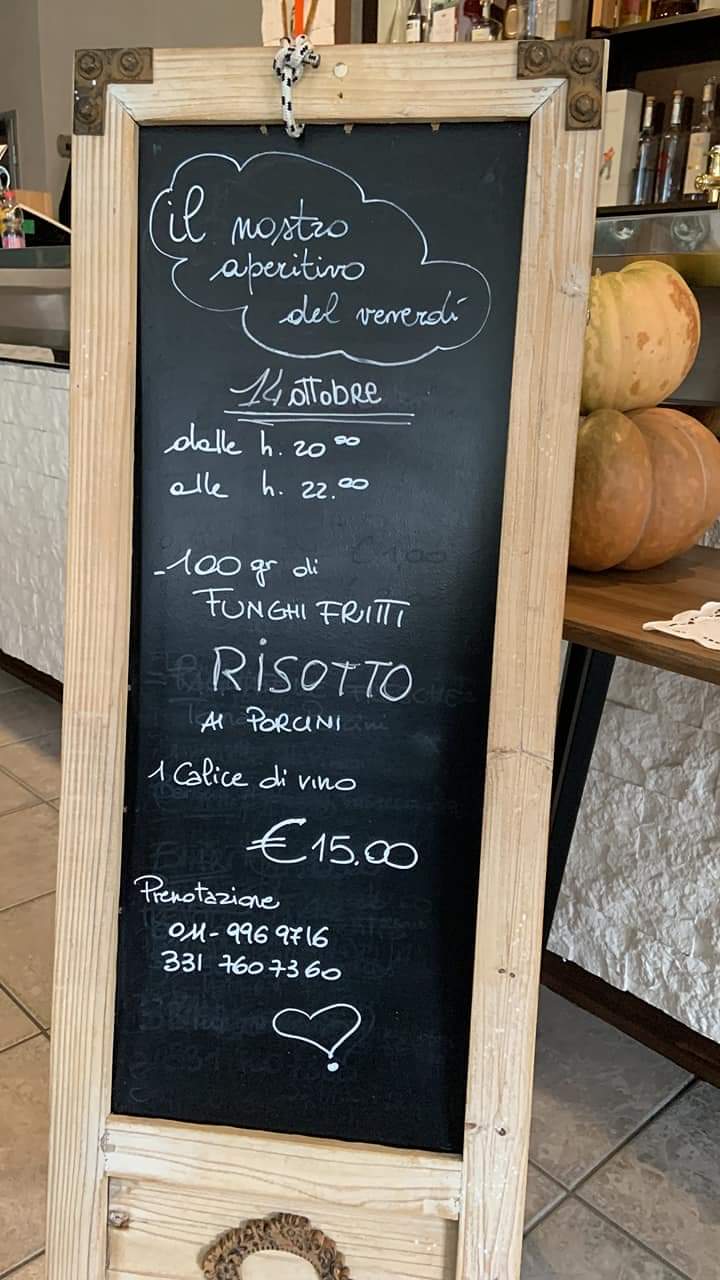 il nostro
aperitivo
del venerdí
14 ottobre
dalle h. 20⁰⁰
alle h. 22.⁰⁰
- 100 gr di
FUNGHI FRITTI
RISOTTO
AI PORCINI
1 Calice di vino
€15.00
Prenotazione
011-996 9716
331 7607360